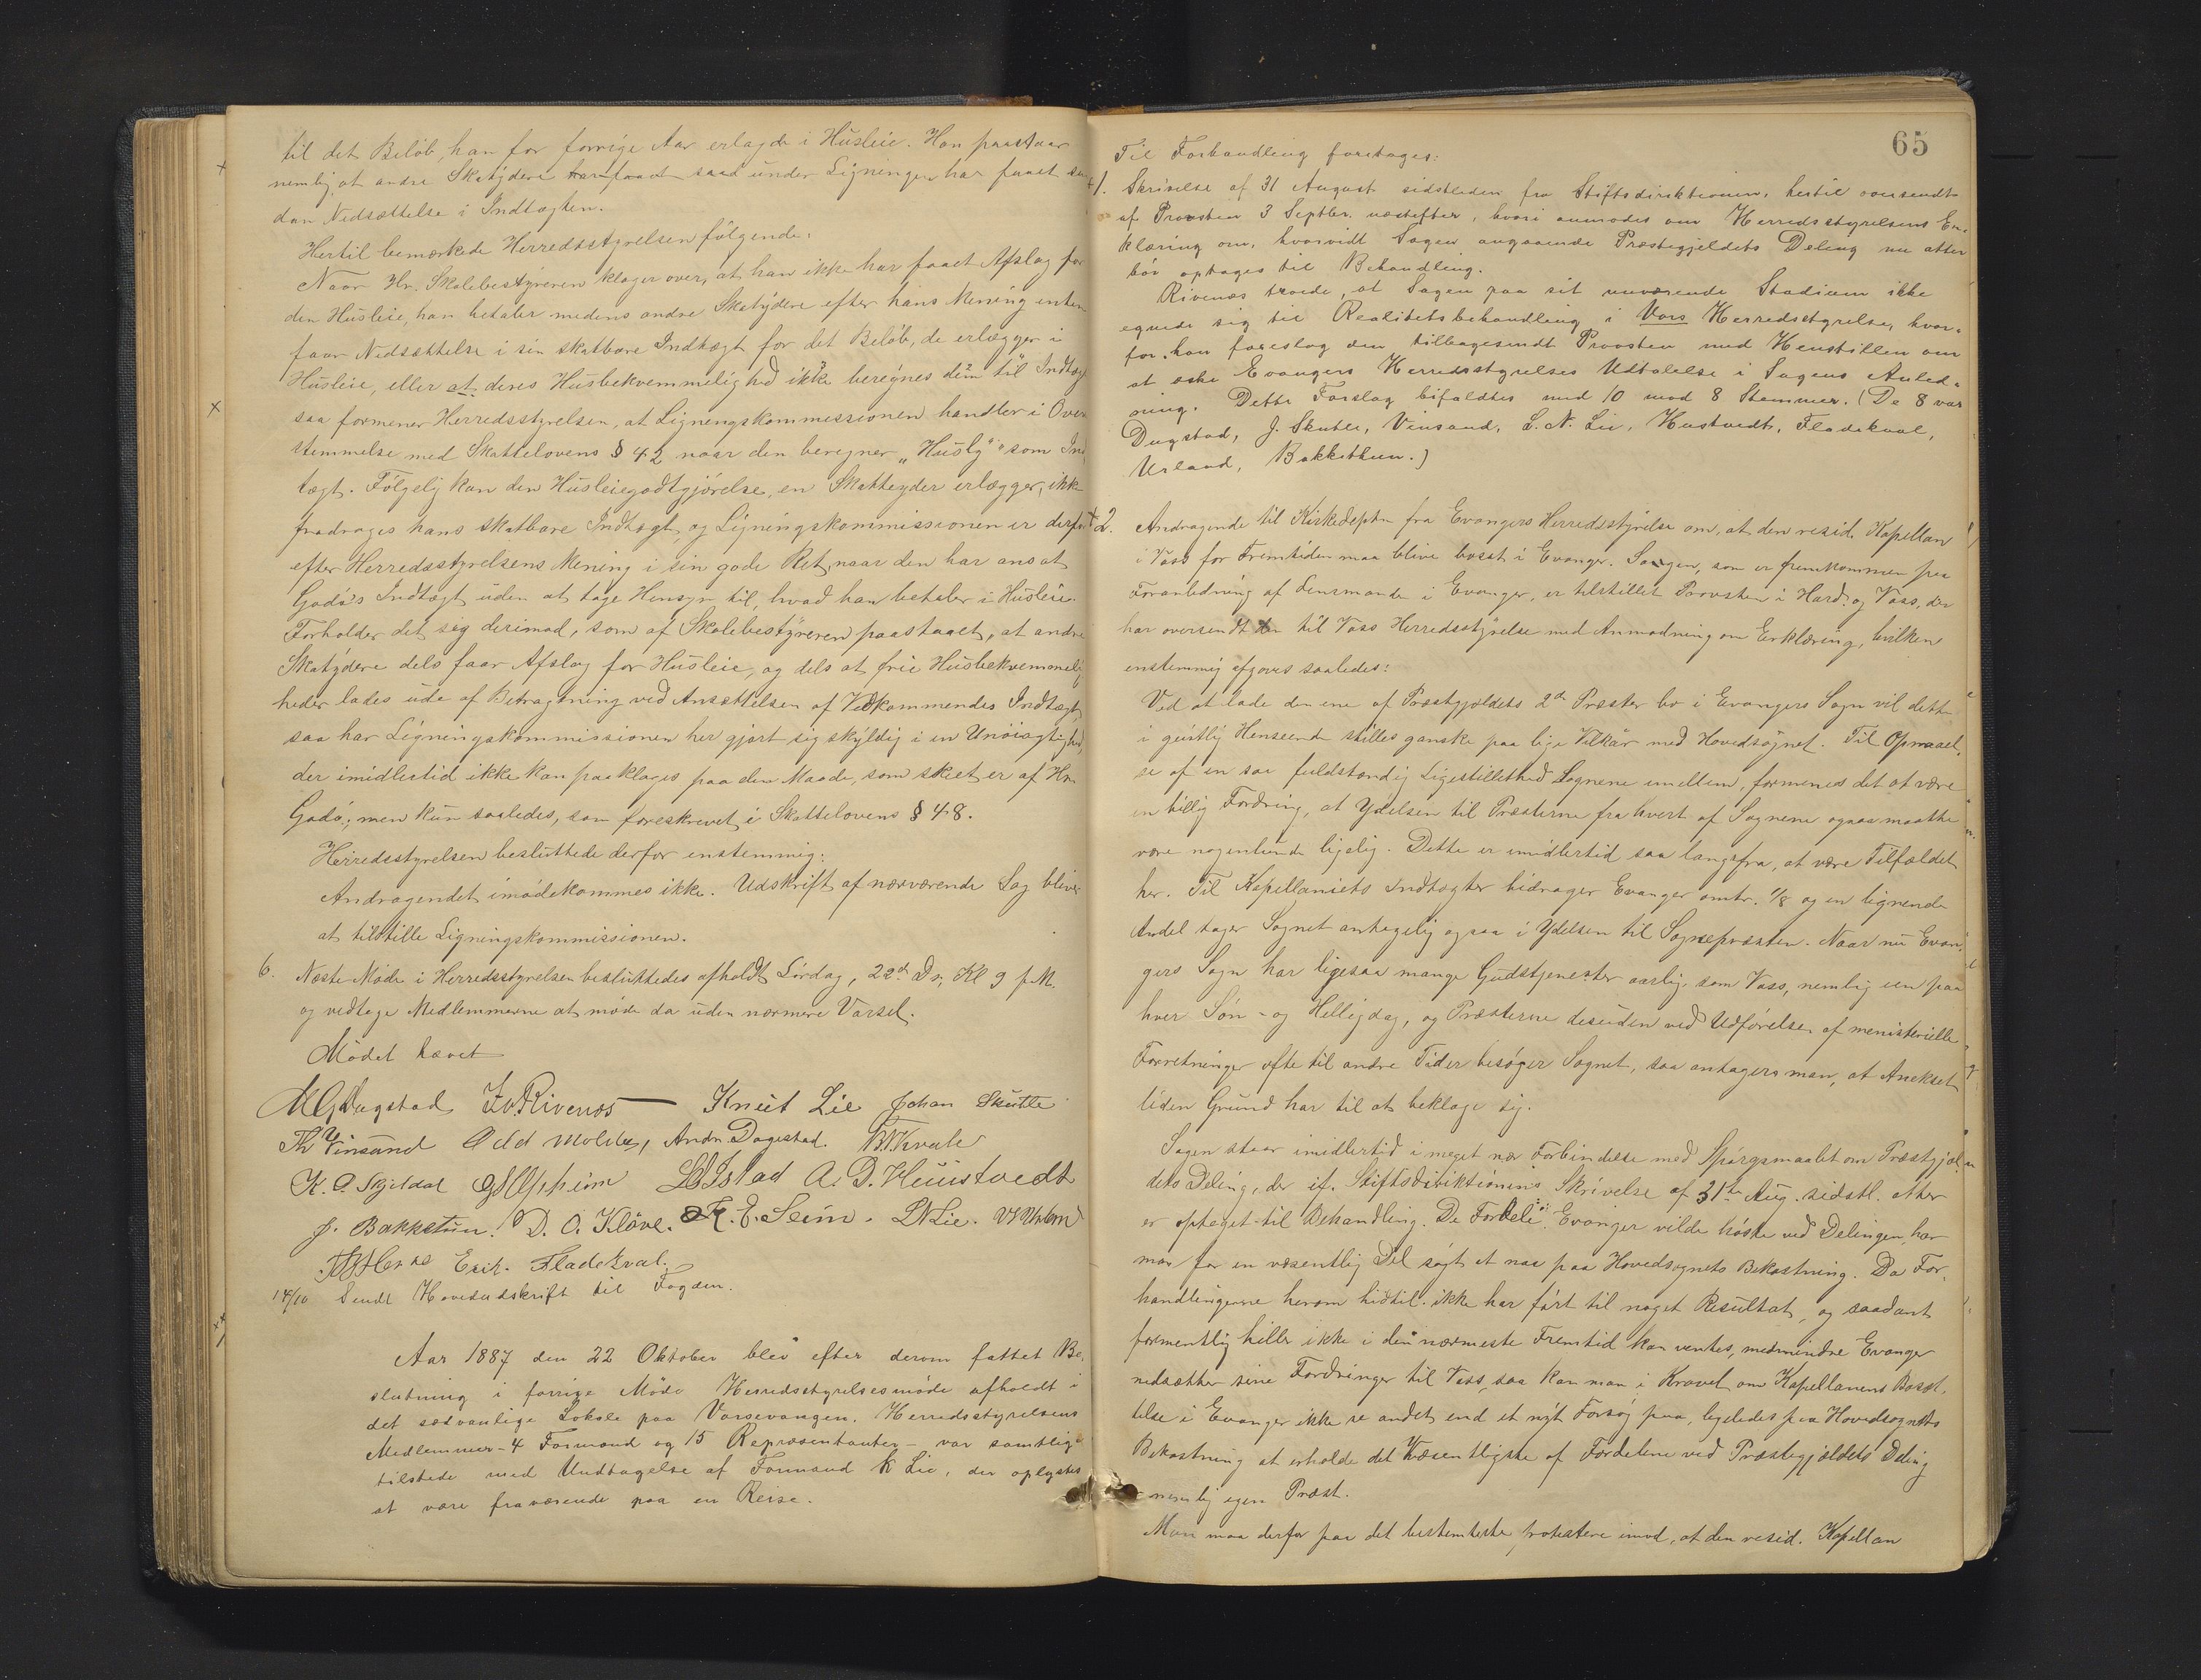 til det Beløb, han for forrige Aar erlagde i Husleie. Han paastaar
nemlig, at andre Skatydere har faaet saad under Ligningen har faaet saa
dan Nedsættelse i Indtægten.
Hertil bemærkede Herredsstyrelsen følgende.
Naar Hr. Skolebestyreren klager over, at han ikke har faaet Afslag for
den Husleie, han betaler medens andre Skatydere efter hans Mening enten
faar Nedsættelse i sin skatbare Indtægt for det Beløb, de erlægger i
Husleie, eller at deres Husbekvemmelighed ikke beregnes dem til Indtægt
saa formener Herredsstyrelsen, at Ligningskommissionen handler i Over
stemmelse med Skattelovens § 42 naar den beregner "Husly" som Ind
tægt. Følgelig kan den Husleiegodtgjørelse, en Skatteyder erlægger, ikke
fradrages hans skatbare Indtægt, og Ligningskommissionen er derfor
efter Herredsstyrelsens Mening i sin gode Ret, naar den har ansat
Gadø's Indtægt uden at tage Hensyn til, hvad han betaler i Husleie.
Forholder det sig derimod, som af Skolebestyreren paastaaet, at andre
Skatydere dels faar Afslag for Husleie, og dels at frie Husbekvemmelig
heder lades ude af Betragtning ved Ansættelsen af Vedkommendes Indtægt,
saa har Ligningskommissionen her gjort sig skyldig i en Unøiagtighed,
der imidlertid ikke kan paaklages paa den Maade, som skeet er af Hr.
Gadø, men kun saaledes, som foreskrevet i Skattelovens § 48.
Herredsstyrelsen besluttede derfor enstemmig:
Andragendet imødekommes ikke. Udskrift af nærværende Sag bliver
at tilstille Ligningskommissionen.
6. Næste Møde i Herredsstyrelsen besluttedes afholdt Lørdag, 22de Ds, Kl 9 f.M.
og vedtage Medlemmerne at møde da uden nærmere Varsel.
Mødet hævet
MGDugstad IvRivenæs Knut Lie Johan Skutle
Th Vinsand Odd Molster, Andr. Dagestad. BTKvale
K. O. Skjeldal Opheim Istad A. D. Huustvedt
J. Bakketun. D. O. Kløve. K. E. Seim. LNLie.
Erik. Fladekval.
14/10 Sendt Hovedudskrift til Fogden.
Aar 1887 den 22 Oktober blev efter derom fattet Be-
slutning i forrige Møde Herredsstyrelsesmøde afholdt i
det sædvanlige Lokale paa Vossevangen. Herredsstyrelsens
Medlemmer - 4 Formænd og 15 Repræsentanter - var samtlige
tilstede med Undtagelse af Formand K Lie, der oplystes
at være fraværende paa en Reise.
65
Til Forhandling foretages:
1. Skrivelse af 31 August sidstleden fra Stiftsdirektionen, hertil oversendt
af Provsten 3 Septbr. næstefter, hvori anmodes om Herredsstyrelsens Er-
klæring om, hvorvidt Sagen angaaende Præstegjeldets Deling nu atter
bør optages til Behandling.
Rivenæs troede, at Sagen paa sit nuværende Stadium ikke
egnede sig til Realitetsbehandling i Vors Herredsstyrelse, hvor-
for han foreslog den tilbagesendt Provsten med Henstillen om
at æske Evangers Herredsstyrelses Udtalelse i Sagens Anled-
ning. Dette Forslag bifaldtes med 10 mod 8 Stemmer. (De 8 var
Dugstad, J. Skutle, Vinsand, L. N. Lie, Hustvedt, Fladekval,
Urland, Bakkethun.)
2. Andragende til Kirkedeptn fra Evangers Herredsstyrelse om, at den resid. Kapellan
i Voss for Fremtiden maa blive bosat i Evanger. Sagen, som er fremkommen paa
Foranledning af Lensmanden i Evanger, er tilstillet Provsten i Hard. og Voss, der
har oversendt den til Voss Herredsstyrelse med Anmodning om Erklæring, hvilken
enstemmig afgaves saaledes:
Ved at lade den ene af Præstgjældets 2de Præster bo i Evangers Sogn vil dette
i geistlig Henseende stilles ganske paa lige Vilkår med Hovedsognet. Til Opnaael-
se af en saa fuldstændig Ligestillethed Sognene imellem, formenes det at være
en billig Fordring, at Ydelsen til Præsterne fra hvert af Sognene ogsaa maatte
være nogenlunde ligelig. Dette er imidlertid saa langtfra, at være Tilfældet
her. Til Kapellaniets Indtægter bidrager Evanger omtr. 1/8 og en lignende
Andel tager Sognet antagelig ogsaa i Ydelsen til Sognepræsten. Naar nu Evan-
gers Sogn har ligesaa mange Gudstjenester aarlig som Voss, nemlig een paa
hver Søn- og Helligdag, og Præsterne desuden ved Udførelsen af ministerielle
Forretninger ofte til andre Tider besøger Sognet, saa antages man, at Anekset
liden Grund har til at beklage sig.
Sagen staar imidlertid i meget nær Forbindelse med Spørgsmaalet om Præstgjæl-
dets Deling, der if. Stiftsdirektionens Skrivelse af 31te Aug. sidstl. atter
er optaget til Behandling. De Fordele, Evanger vilde høste ved Delingen, har
man for en væsentlig Del søgt at naa paa Hovedsognets Bekostning. Da For-
handlingerne herom hidtil ikke har ført til noget Resultat, og saadant
formentlig heller ikke i den nærmeste Fremtid kan ventes, medmindre Evanger
nedsætter sine Fordringer til Voss, saa kan man i Kravet om Kapellanens Bosæt-
telse i Evanger ikke se andet end et nyt Forsøg paa, ligeledes paa Hovedsognets
Bekostning at erholde det Væsentligste af Fordelene ved Præstegjældets Deling
nemlig egen Præst.
Man maa derfor paa det bestemteste protestere imod, at den resid. Kapellan